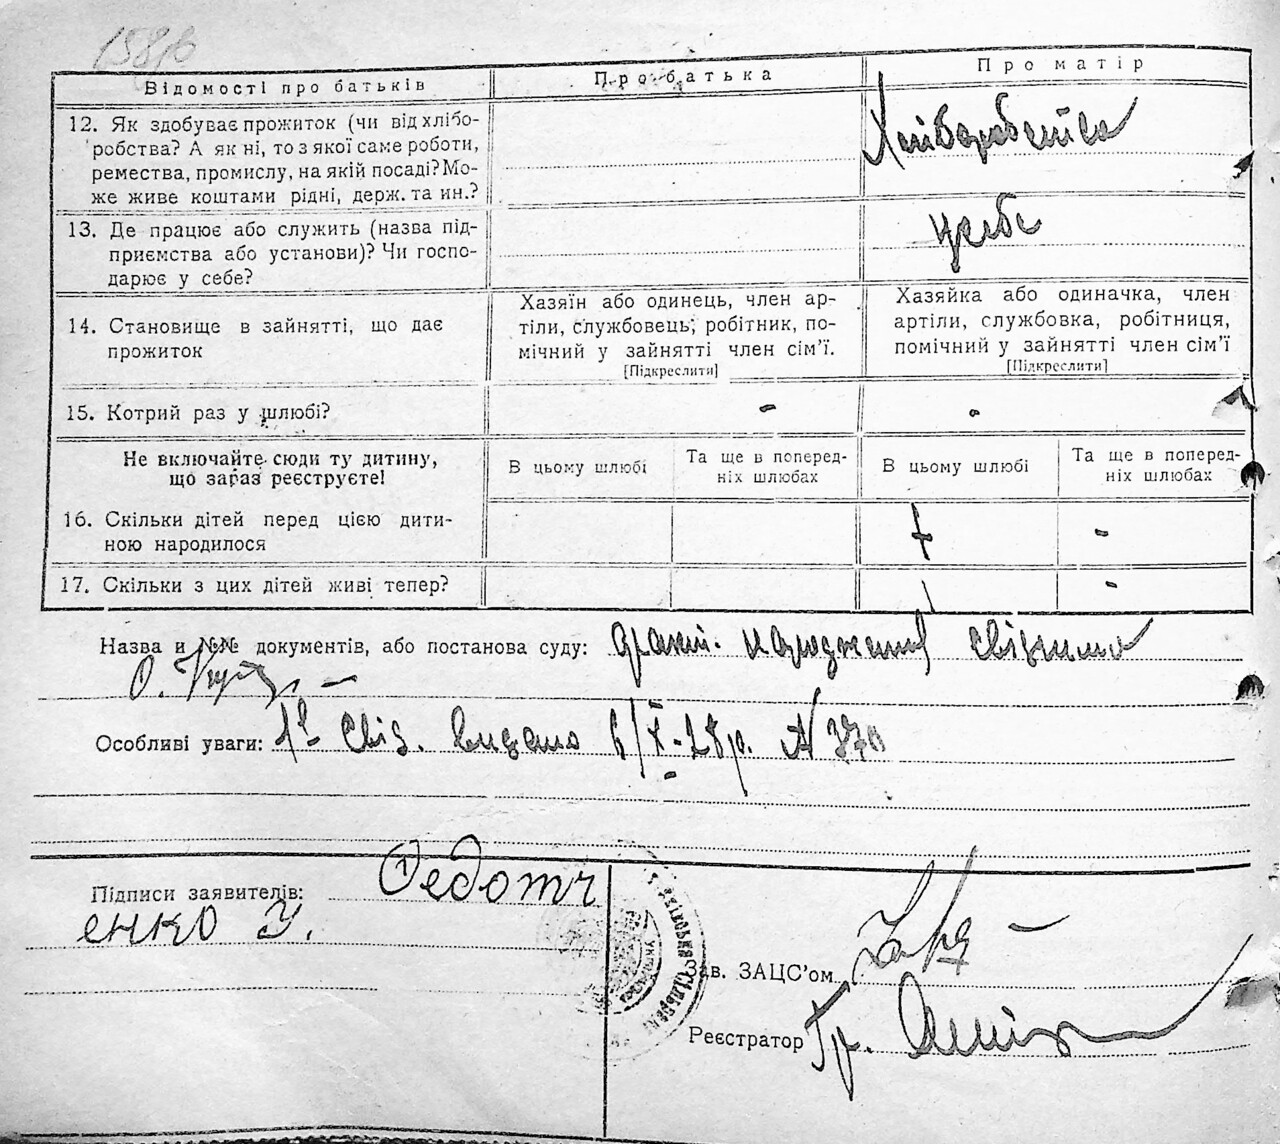 Відомості про батьків
Про батька
Про матір
12. Як здобуває прожиток (чи від хлібо-
робства? А як ні, то з якої саме роботи,
ремества, промислу, на якій посаді? Мо-
же живе коштами рідні, держ. та ин.?
13. Де працює або служить (назва під-
приємства або установи)? Чи госпо-
дарює у себе?
14. Становище в зайнятті, що дає
прожиток
Хазяїн або одинець, член ар-
тіли, службовець, робітник, по-
мічний у зайнятті член сім'ї.
[Підкреслити]
Хазяйка або одиначка, член
артіли, службовка, робітниця,
помічний у зайнятті член сім'ї
[Підкреслити]
15. Котрий раз у шлюбі?
-
-
Не включайте сюди ту дитину,
що зараз реєструєте!
В цьому шлюбі
Та ще в поперед-
ніх шлюбах
В цьому шлюбі
Та ще в поперед-
ніх шлюбах
16. Скільки дітей перед цією дити-
ною народилося
-
17. Скільки з цих дітей живі тепер?
-
Назва и №№ документів, або постанова суду: народження
О.
Особливі уваги: свід. видано 6/X-28р. №
Підписи заявителів: Федотч
енко У.
Зав. ЗАЦС'ом
Реєстратор Гр.